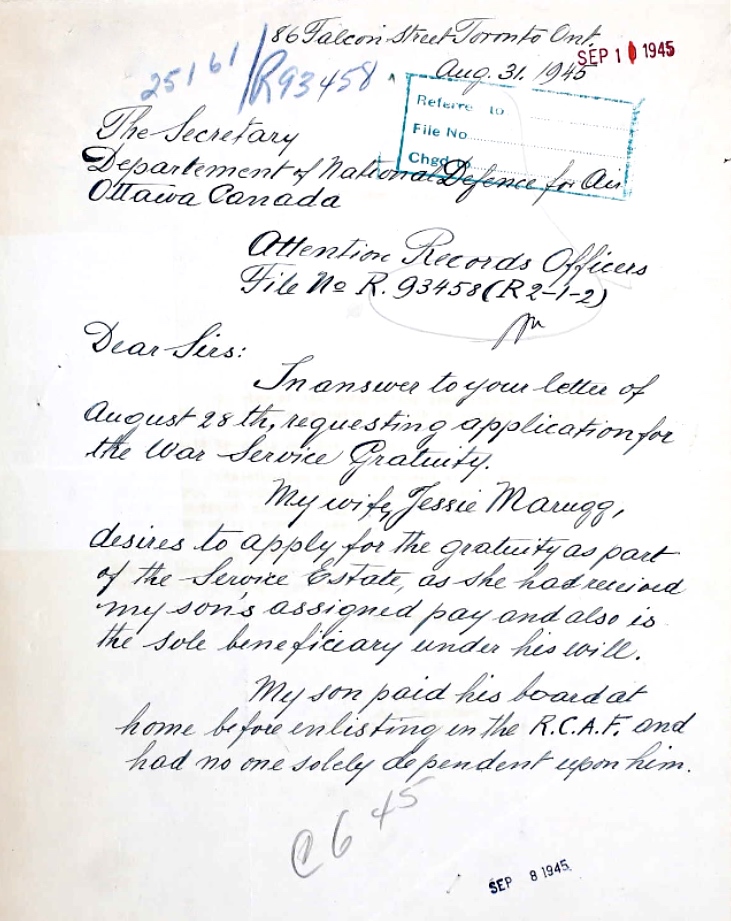 86 Falcon Street Toronto Ont.
SEP 10 1945
25161/R93458
Aug. 31. 1945
Referre to
File No
Chgd
The Secretary
Departement of National Defence for Air
Ottawa Canada
Attention Records Officers
File No R. 93458 (R2-1-2)
Dear Sirs:
In answer to your letter of
August 28th, requesting application for
the War Service Gratuity.
My wife, Jessie Marugg,
desires to apply for the gratuity as part
of the Service Estate, as she had received
my son's assigned pay and also is
the sole beneficiary under his will.
My son paid his board at
home before enlisting in the R.C.A.F. and
had no one solely dependent upon him.
C645
SEP 8 1945